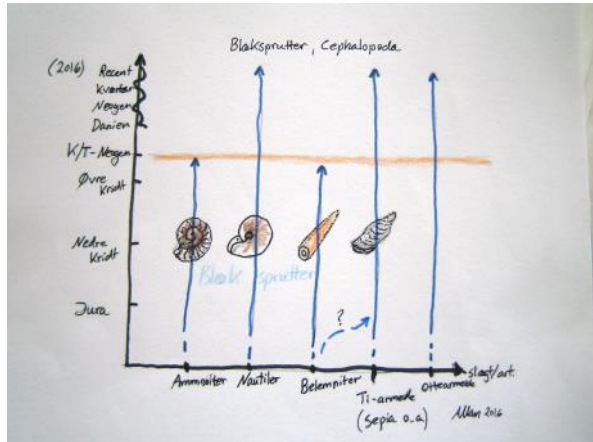 Blæksprutter, Cephalopoda
(2016) Recent
Kvartær
Neogen
Danien
K/T-Neogen
Øvre
Kridt
Nedre
Kridt
Blæk sprutter
Jura
?
Ammoniter Nautiler Belemniter Ti-armede Ottearmede slægt/art.
(Sepia o.a)
Allan 2016